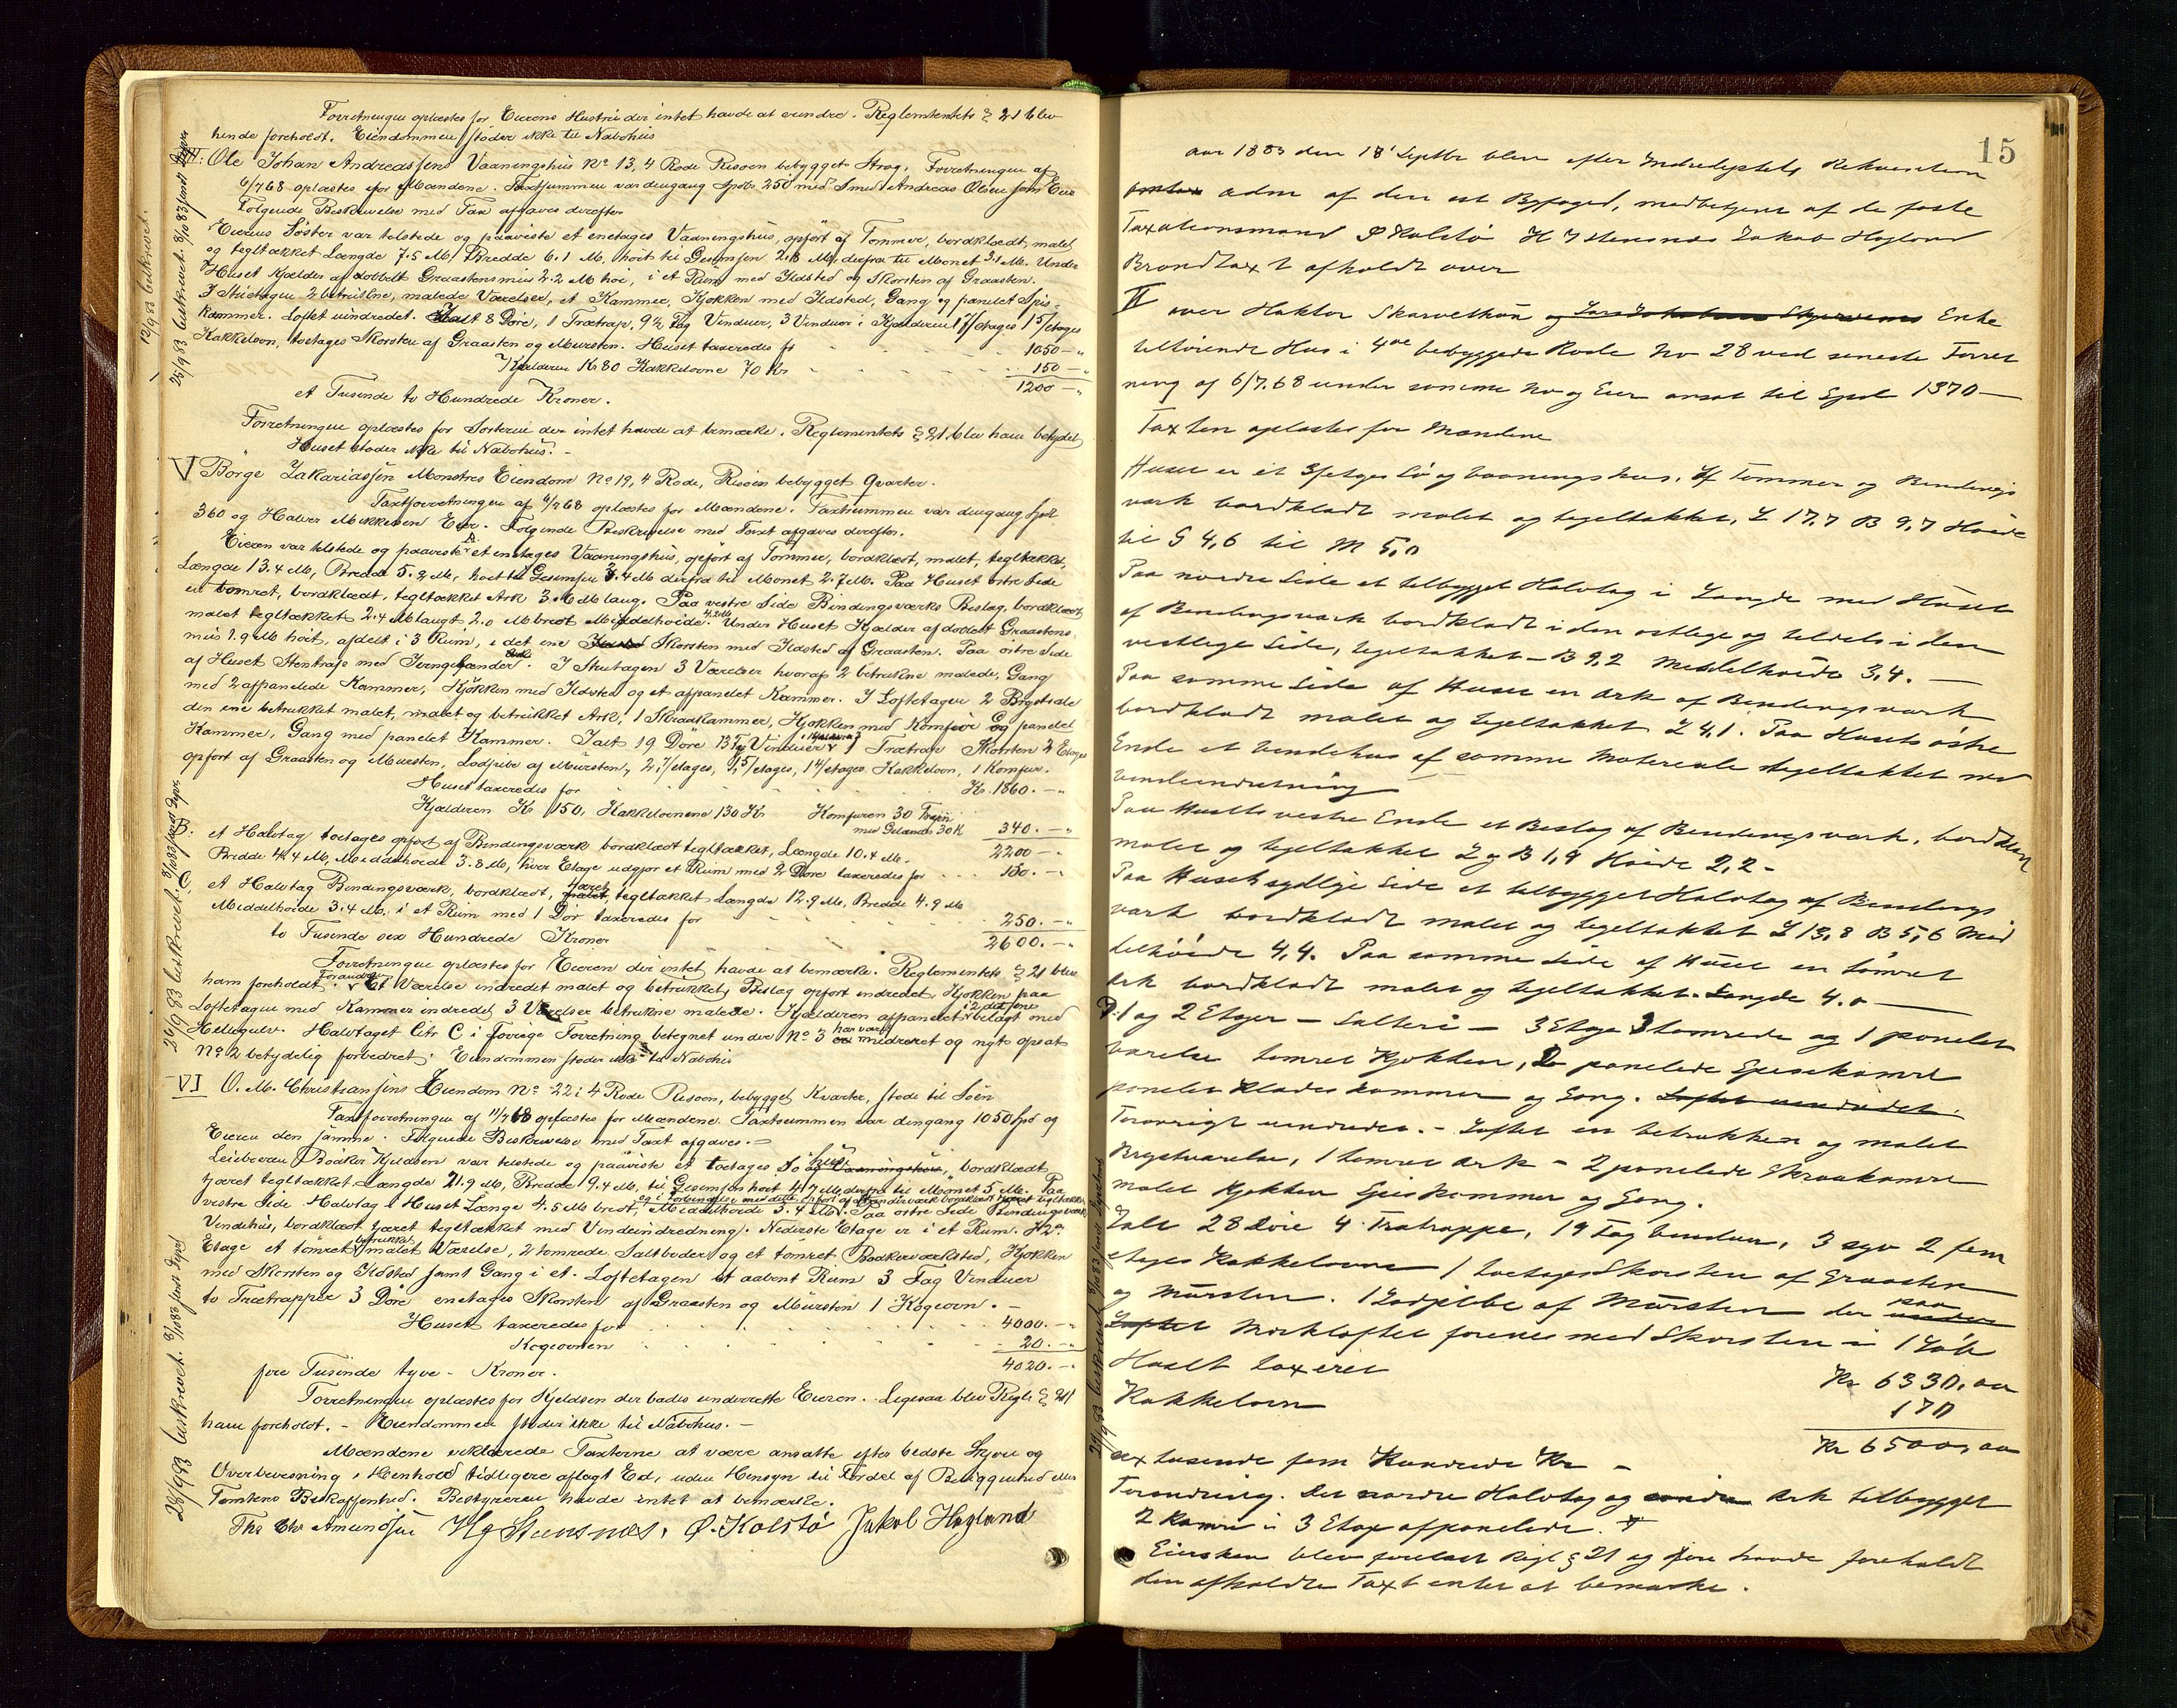 Forretningen oplæstes for Eierens Hustru der intet havde at erindre. Reglementets § 21 blev
hende foreholdt. Eiendommen støder ikke til Nabohus
Ole Johan Andreassens Vaaningshus No 13, 4 Rode Risøen bebygget Strøg. Forretningen af
6/7 68 oplæstes for Mændene. Taxtsummen var dengang Spdr 250 med Smed Andreas Olsen som Eier
Følgende Beskrivelse med Tax afgaves derefter
Eierens Søster var tilstede og paaviste et enetages Vaaningshus, opført af Tømmer, bordklædt, malet
og tegltækket Længde 7.5 M. Bredde 6.1 M, høit til Gesimsen 2.8 M, derfra til Mønet 3.1 M. Under
Huset Kjælder af dobbelt Graastensmur 2.2 M høi, i et Rum med Ildsted og Skorsten af Graasten.
I Stuetagen 2 betrukne, malede Værelser, et Kammer, Kjøkken med Ildsted, Gang og panelet Spis-
kammer. Loftet uindredet. Ialt 8 Døre, 1 Trætrap, 9½ Fag Vinduer, 3 Vinduer i Kjælderen 1 7/etages 1 5/etages
Kakkelovn, toetages Skorsten af Graasten og Mursten. Huset taxeredes for 1050 - "
Kjælderen Kr 80 Kakkelovne 70 Kr 150 - "
1200 - "
et Tusinde to Hundrede Kroner.
Forretningen oplæstes for Søsteren der intet havde at bemærke. Reglementets § 21 blev ham betydet
Huset støder ikke til Nabohus. -
V Børge Zakariassen Monstres Eiendom No 19, 4 Rode, Risøen bebygget Qvarter.
Taxtforretningen af 6/7 68 oplæstes for Mændene. Taxtsummen var dengang Spdl
360 og Halvor Mikkelsen Eier. Følgende Beskrivelse med Taxt afgaves derefter.
Eieren var tilstede og paaviste A: et enetages Vaaningshus, opført af Tømmer, bordklædt, malet, tegltækket,
Længde 13.4 M, Bredde 5.9 M, høit til Gesimsen 3.4 M derfra til Mønet 2.7 M. Paa Huset østre Side
en tømret, bordklædt, tegltækket Ark 3.6 M lang. Paa vestre Side Bindingsværks Beslag, bordklædt
malet tegltækket 2.4 M langt 2.0 M bredt Middelhøide 4.2 M. Under Huset Kjælder af dobbelt Graastens-
mur 1.9 M høit, afdelt i 3 Rum, i det ene Skorsten med Ildsted af Graasten. Paa østre Side
af Huset Stentrap med Jerngelænder. I Stuetagen 3 Værelser hvoraf 2 betrukne malede, Gang
med 2 afpanelede Kammer, Kjøkken med Ildsted og et afpanelet Kammer. I Loftetagen 2 Brystsale
den ene betrukket malet, malet og betrukket Ark, 1 Skraakammer, Kjøkken med Komfur og panelet
Kammer, Gang med panelet Kammer. Ialt 19 Døre 13 Fag Vinduer 1 Trætrap Skorsten 2 Etages
opført af Graasten og Mursten, Lodpibe af Mursten, 2 7/etages, 1 5/etages, 1 4/etages Kakkelovn, 1 Komfur.
Huset taxeredes for Kr. 1860. - "
Kjælderen Kr 150, Kakkelovnene 130 Kr Komfuren 30 Trapn
med Gelænder 30 K 340. - "
2200 - "
B: et Halvtag toetages opført af Bindingsværk bordklædt tegltækket, Længde 10.4 M.
Bredde 4.4 M, Middelhøide 3.8 M, hver Etage udgjør et Rum med 2 Døre taxeredes for 150. - "
C: et Halvtag Bindingsværk, bordklædt, tjæret tegltækket Længde 12.9 M, Bredde 4.9 M
Middelhøide 3.4 M. i et Rum med 1 Dør taxeredes for 250. - "
to Tusinde sex Hundrede Kroner 2600. - "
Forretningen oplæstes for Eieren der intet havde at bemærke. Reglementets § 21 blev
ham foreholdt. Forandring: Et Værelse indredet malet og betrukket, Beslag opført indredet, Kjøkken paa
Loftetagen med Kammer indredet 3 Værelser betrukne malede. Kjælderen afpanelet i 2 det ene belagt med
Hellegulv. Halvtaget litr C i forrige Forretning betegnet under No 3 har været indredet og nyt opsat
No 2 betydelig forbedret. Eiendommen støder ikke til Nabohus
VI O. M. Christiansens Eiendom No 22 i 4 Rode Risøen, bebygget Kvarter, støde til Søen
Taxtforretningen af 11/7 68 oplæstes for Mændene Taxtsummen var dengang 1050 Spd og
Eieren den samme. Følgende Beskrivelse med Taxt afgaves. -
Leieboeren Bødker Kjeldsen var tilstede og paaviste et toetages Søhus og Vaaningshus, bordklædt
tjæret tegltækket Længde 21.9 M, Bredde 9.4 M, til Gesimsen høit 4.7 M derfra til Mønet 5 M. Paa
og i Forbindelse med dette opført af Bindingsværk bordklædt tjæret tegltækket
vestre Side Halvtag i Huset Længe 4.5 M bredt, Middelhøide 3.4 M. Paa østre Side Bindingsværk
Vindehus, bordklædt tjæret tegltækket med Vindeindredning. Nederste Etage er i et Rum. I 2den
Etage et tømret betrukket malet Værelse, 2 tømrede Saltboder og et tømret Bødkerværksted, Kjøkken
med Skorsten og Ildsted samt Gang i et. Loftetagen et aabent Rum 3 Fag Vinduer
to Trætrapper 3 Døre enetages Skorsten af Graasten og Mursten 1 Kogeovn. -
Huset taxeredes for 4000. - "
Kogeovnen 20. - "
fire Tusinde tyve - Kroner. 4020. - "
Forretningen oplæstes for Kjeldsen der bades underrette Eieren. Ligesaa blev Regl § 21
ham foreholdt. - Eiendommen støder ikke til Nabohus. -
Mændene erklærede Taxterne at være ansatte efter bedste Skjøn og
Overbevisning i Henhold tidligere aflagt Ed, uden Hensyn til Fordel af Beliggenhed eller
Tomtens Beskaffenhed. Bestyreren havde intet at bemærke.
Ths Chr Amundsen Hg Steensnæs, Ø. Kolstø Jakob Høyland
12/9 83 beskrevet.
25/9 83 beskrevet. 3/10 83 sendt Dyre
26/9 83 beskrevet 3/10 83 sendt Dyre
28/9 83 beskrevet. 3/10 83 sendt Dyre
15
Aar 1883 den 18 Septbr blev efter Indredeptets Rekvisition
adm af den est Byfoged, medbetjent af de faste
Taxationsmænd Ø Kolstø H G Steensnæs Jakob Høyland
Brandtaxt afholdt over
II over Haktor Skarvethun og Enke
tilhørende Hus i 4de bebyggede Rode No 28 ved seneste Forret
ning af 6/7.68 under samme No og Eier ansat til Spd 1370 -
Taxten oplæstes for Mændene
Huset er et 3 etages Sø og Vaaningshus, af Tømmer og Bindings
værk bordklædt malet og tegeltækket, L 17,7 B 9,7 Høide
til G 4,6 til M 5,0
Paa nordre Side et tilbygget Halvtag i Længde med Huset
af Bindingsværk bordklædt i den østlige og tildels i den
vestlige Side, tegeltækket - B 9,2 Middelhøide 3,4. -
Paa samme Side af Huset en Ark af Bindingsværk
bordklædt malet og tegeltækket L 4,1. Paa Husets østre
Ende et Vindehus af samme Materiale tegeltækket med
Vindeindretning
Paa Husets vestre Ende et Beslag af Bindingsværk, bordklædt
malet og tegeltækket L og B 1,9 Høide 2,2 -
Paa Husets sydlige Side et tilbygget Halvtag af Bindings
værk bordklædt malet og tegeltækket L 13,8 B 5,6 Mid
delhøide 4,4. Paa samme Side af Huset en tømret
Ark bordklædt malet og tegeltækket. Længde 4.0
1 og 2 Etager - Salteri - 3 Etage 3 tømrede og 1 panelet
Værelse tømret Kjøkken, 2 panelede Spisekamre
panelet Klædeskammer og Gang. Loftet uindredet
Forøvrigt uindredet. - Loftet en betrukken og malet
Brystværelse, 1 tømret Ark - 2 panelede Skraakamre
malet Kjøkken Spiskammer og Gang.
Ialt 28 Døre 4 Trætrappe, 19 Fag Vinduer, 3 syv 2 fem
etages Kakkelovne 1 toetages Skorsten af Graasten
og Mursten. 1 Lodpibe af Mursten der paa under
Loftet Mørkloftet forenes med Skorsten i 1 Løb
Huset taxeret Kr 6330,00
Kakkelovn 170
Kr 6500,00
sex tusende fem Hundrede Kr -
Forandring. Det nordre Halvtag og søndre Ark tilbygget
2 Kamre i 3 Etage afpanelede.
Eiersken blev forelæst Regl § 21 og foreholdt
den afholdte Taxt intet at bemærke.
28/9 83 beskrevet 3/10 83 sendt Dyre